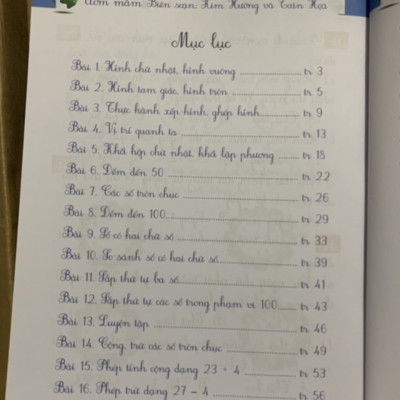 Ươm mầm Biên soạn: Kim Hương và Toán Họa
Mục lục
Bài 1. Hình chữ nhật, hình vuông tr 3
Bài 2. Hình tam giác, hình tròn tr 5
Bài 3. Thực hành xếp hình, ghép hình tr 9
Bài 4. Vị trí quanh ta tr 13
Bài 5. Khối hộp chữ nhật, khối lập phương tr 18
Bài 6. Đếm đến 50 tr 22
Bài 7. Các số tròn chục tr 26
Bài 8. Đếm đến 100 tr 29
Bài 9. Số có hai chữ số tr 33
Bài 10. So sánh số có hai chữ số tr 39
Bài 11. Sắp thứ tự ba số tr 41
Bài 12. Sắp thứ tự các số trong phạm vi 100 tr 43
Bài 13. Luyện tập tr 46
Bài 14. Cộng, trừ các số tròn chục tr 49
Bài 15. Phép tính cộng dạng 23 + 4 tr 53
Bài 16. Phép trừ dạng 27 – 4 tr 56